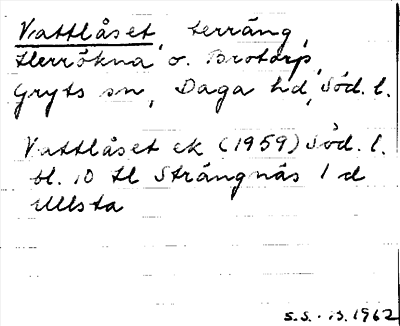 Vattlåset, terräng,
Herrökna o. Brotorp,
Gryts sn, Daga hd, Söd. l.
Vattlåset ek (1959) Söd. l.
bl. 10 tl Strängnäs 1 d
Ullsta
S.S. 1962